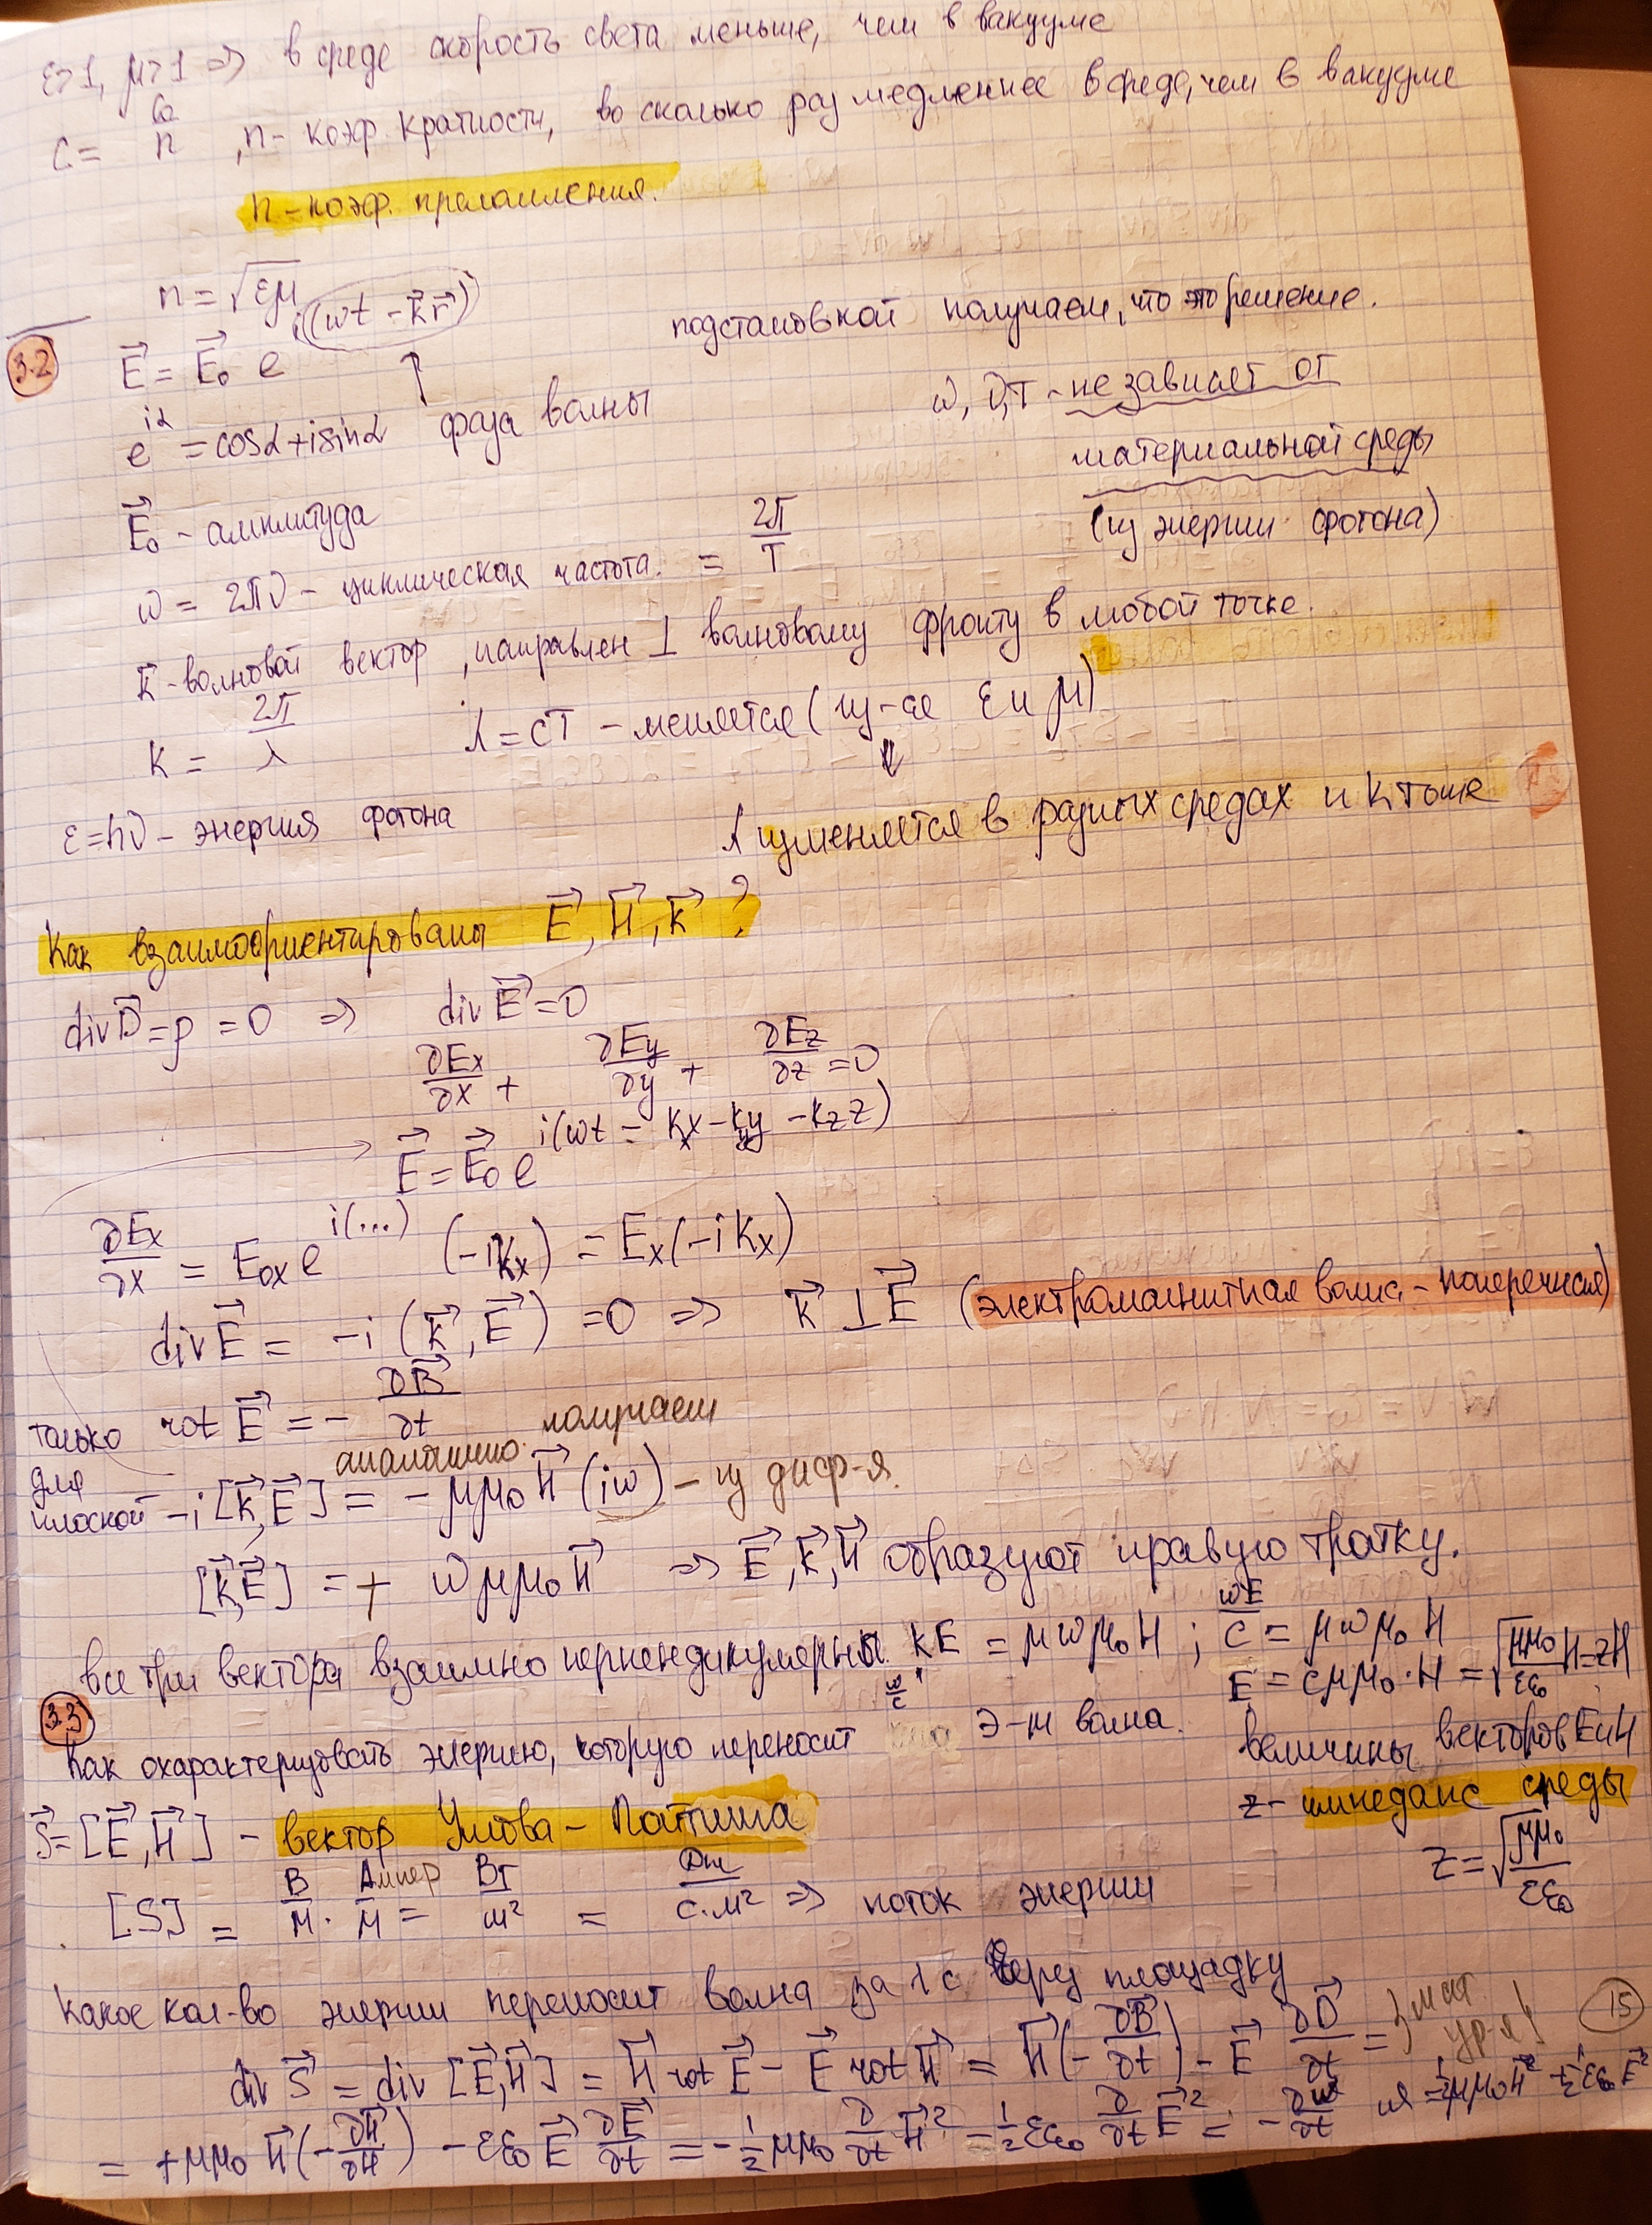 ε>1, μ>1 => в среде скорость света меньше, чем в вакууме
c = c₀/n, n - коэф кратности, во сколько раз медленнее в среде, чем в вакууме
n - коэф. преломления.
n = √εμ
3.2 E⃗ = E⃗₀ e^{i(ωt - k⃗r⃗)} подстановкой получаем, что это решение.
↑
e^{iα} = cosα + i sinα фаза волны
ω, ν, T - не зависят от
материальной среды
(из энергии фотона)
E⃗₀ - амплитуда
ω = 2πν - циклическая частота. = 2π/T
k⃗ - волновой вектор, направлен ⊥ волновому фронту в любой точке.
k = 2π/λ λ = cT - меняется (из-за ε и μ)
ε = hν - энергия фотона λ изменяется в разных средах и k тоже
Как взаимоориентированы E⃗, H⃗, k⃗?
div D⃗ = ρ = 0 => div E⃗ = 0
∂Ex/∂x + ∂Ey/∂y + ∂Ez/∂z = 0
E⃗ = E⃗₀ e^{i(ωt - kₓx - k_y y - k_z z)}
∂Ex/∂x = E₀ₓ e^{i(...)} (-ikₓ) = Eₓ(-ikₓ)
div E⃗ = -i (k⃗, E⃗) = 0 => k⃗ ⊥ E⃗ (электромагнитная волна - поперечная)
только rot E⃗ = - ∂B⃗/∂t
для аналогично получаем
плоской -i [k⃗, E⃗] = - μμ₀ H⃗ (iω) - из диф-я.
[k⃗, E⃗] = + ωμμ₀ H⃗ => E⃗, k⃗, H⃗ образуют правую тройку.
все три вектора взаимно перпендикулярны. kE = μωμ₀H ; ωE/c = μωμ₀H
ω/c
E = cμμ₀·H = √(μμ₀/εε₀) H = zH
3.3
Как охарактеризовать энергию, которую переносит э-м волна.
величины векторов E и H
S⃗ = [E⃗, H⃗] - вектор Умова-Пойтинга
z - импеданс среды
z = √(μμ₀/εε₀)
[S] = В/м · Ампер/м = Вт/м² = Дж/с·м² => поток энергии
Какое кол-во энергии переносит волна за 1 с через площадку
div S⃗ = div [E⃗, H⃗] = H⃗ rot E⃗ - E⃗ rot H⃗ = H⃗(-∂B⃗/∂t) - E⃗ ∂D⃗/∂t = } мат. ур-я!
15
= +μμ₀ H⃗(-∂H⃗/∂H) - εε₀ E⃗ ∂E⃗/∂t = -½μμ₀ ∂/∂t H⃗² - ½εε₀ ∂/∂t E⃗² = - ∂w/∂t
½μμ₀H⃗² + ½εε₀E⃗²